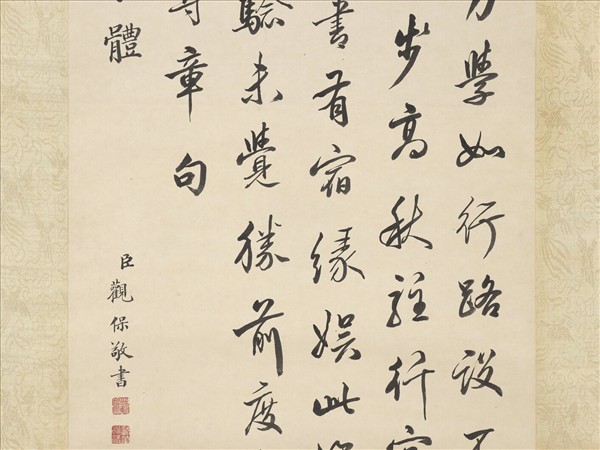 學如行路設
步高秋駐軒
書有宿緣娛此
驗未覺勝前度
章句
體
臣觀保敬書